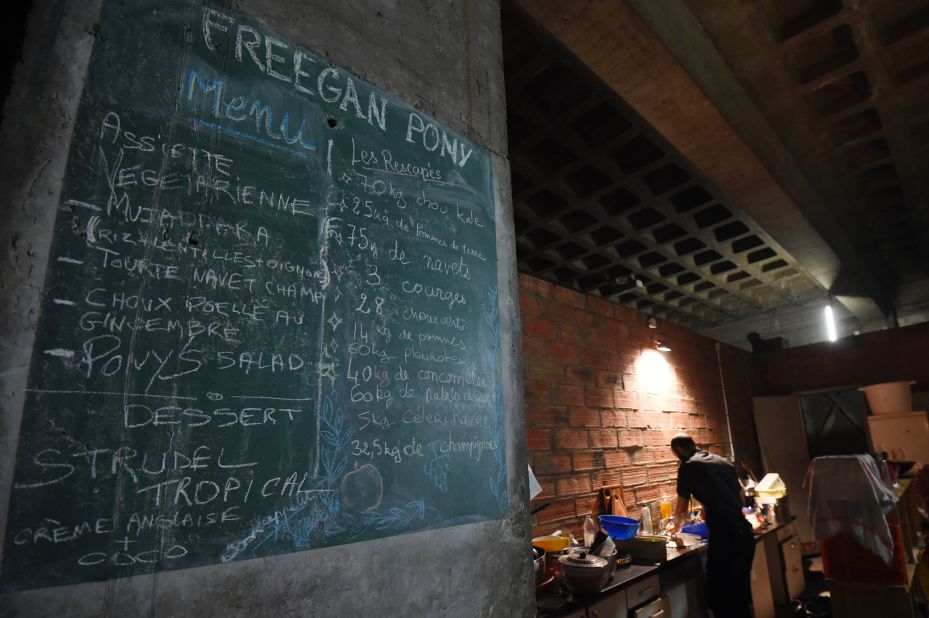 FREEGAN PONY
Menu
ASSIETTE
VÉGÉTARIENNE
- MUJADDARA
(RIZ LENTILLES + OIGNONS)
- TOURTE NAVET CHAMPI
- CHOUX POELLÉ AU
GINGEMBRE
- PONY'S SALAD
DESSERT
STRUDEL
TROPICAL
CRÈME ANGLAISE
+
COCO
Les Rescapés
70kg chou kale
25kg de Pommes de terre
75kg de navets
3 courges
28 choux verts
14 kg de pommes
60kg pleurotes
40 kg de concombres
60kg de patate douce
5kg Céleri Rave
325kg de champignons